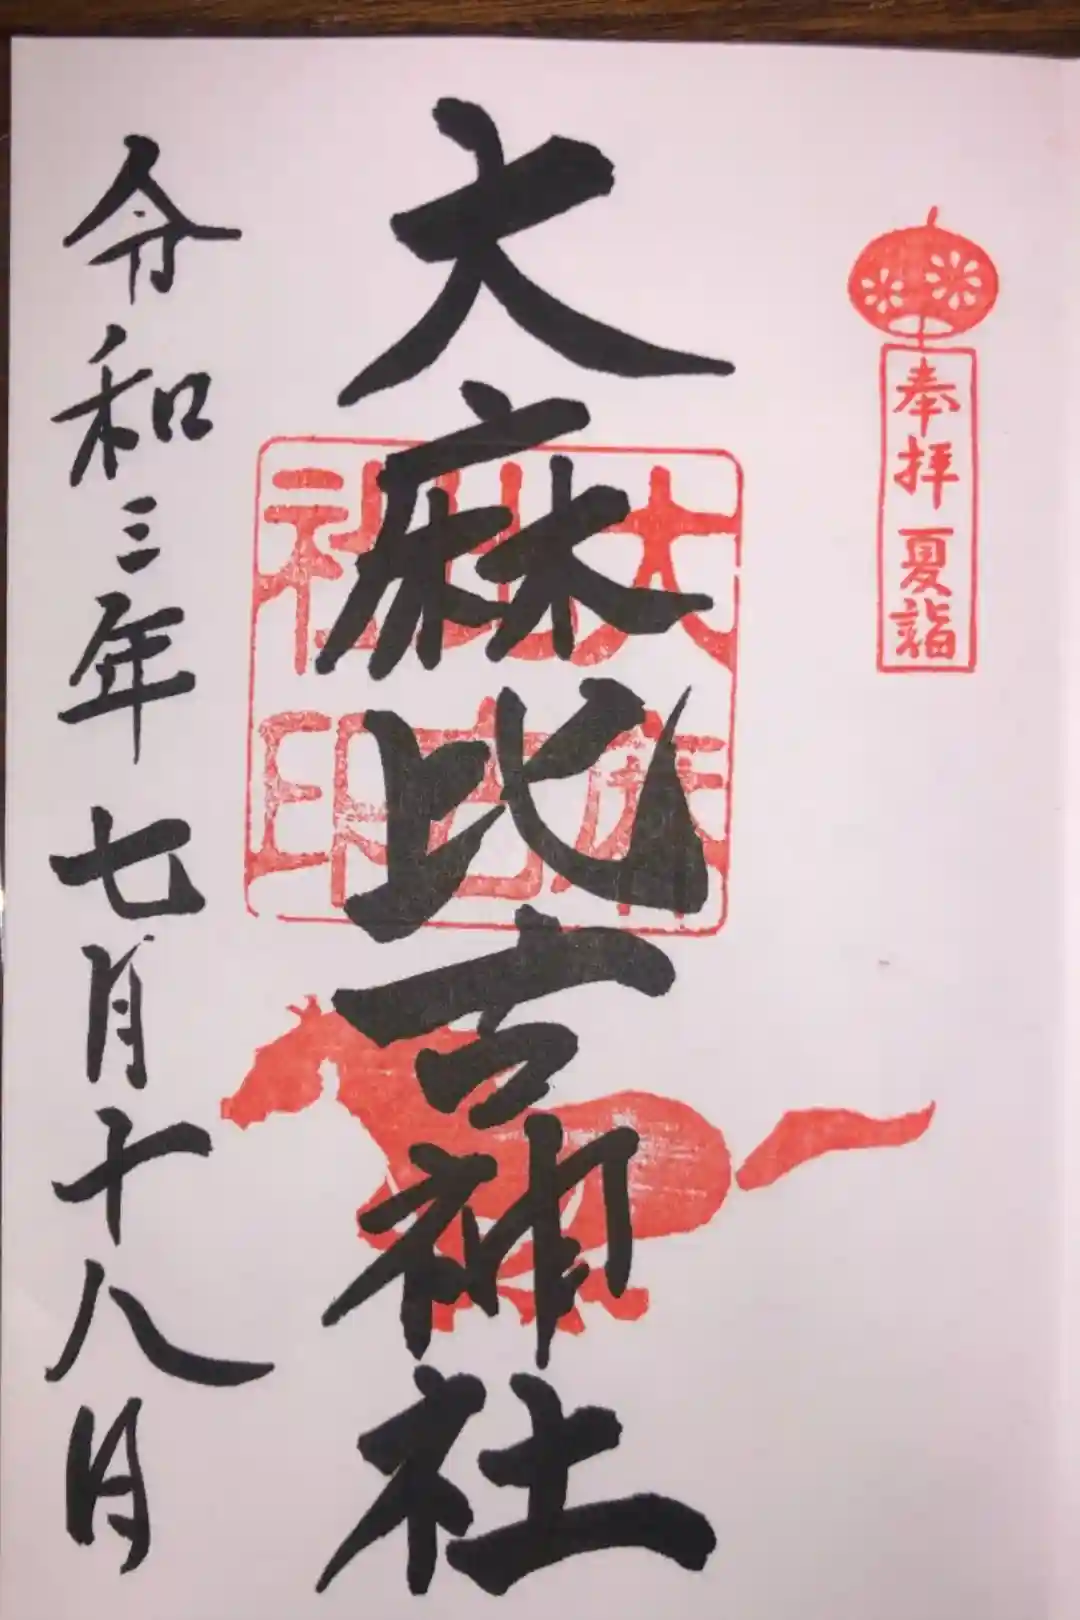 奉拝 夏詣
大麻比古神社
大麻
比古
社印
令和三年七月十八日